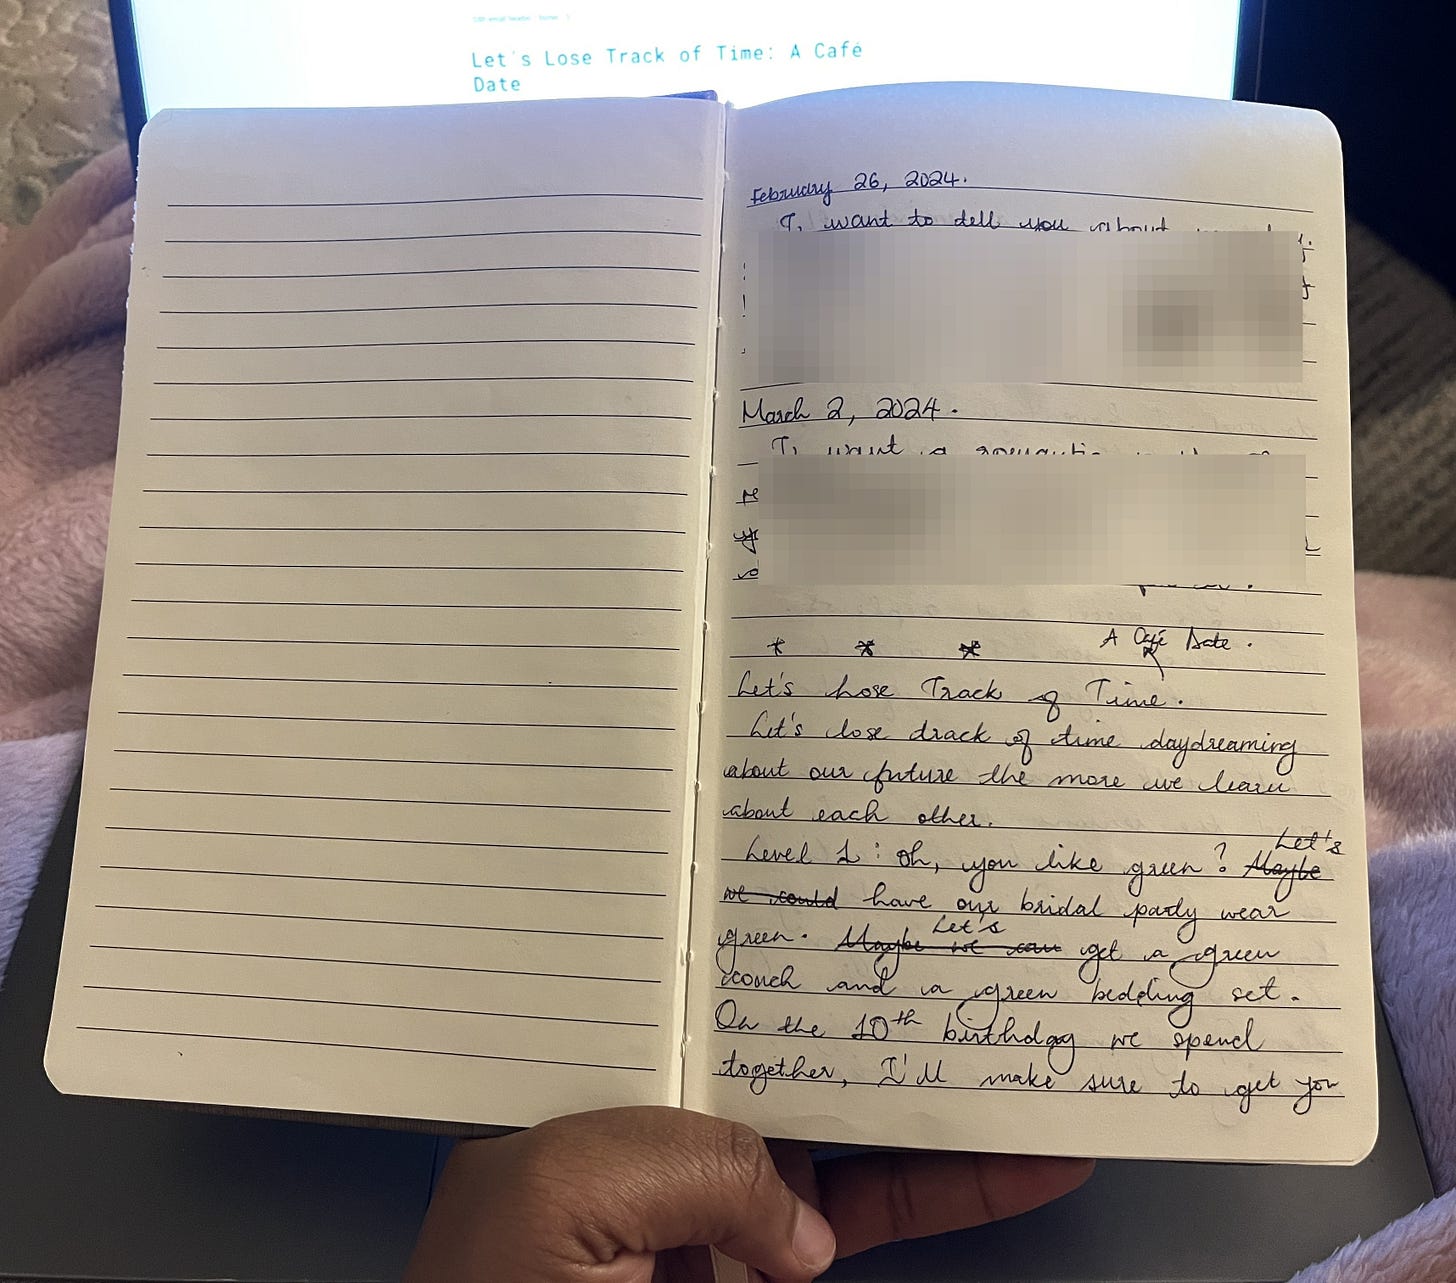 Let's Lose Track of Time: A Café
Date
February 26, 2024.
I want to tell you about
March 2, 2024.
I want a romantic
* * * A Café Date.
Let's Lose Track of Time.
Let's lose track of time daydreaming
about our future the more we learn
about each other.
Let's
Level 1: Oh, you like green? Maybe
we could have our bridal party wear
Let's
green. Maybe we can get a green
couch and a green bedding set.
On the 10th birthday we spend
together, I'll make sure to get you